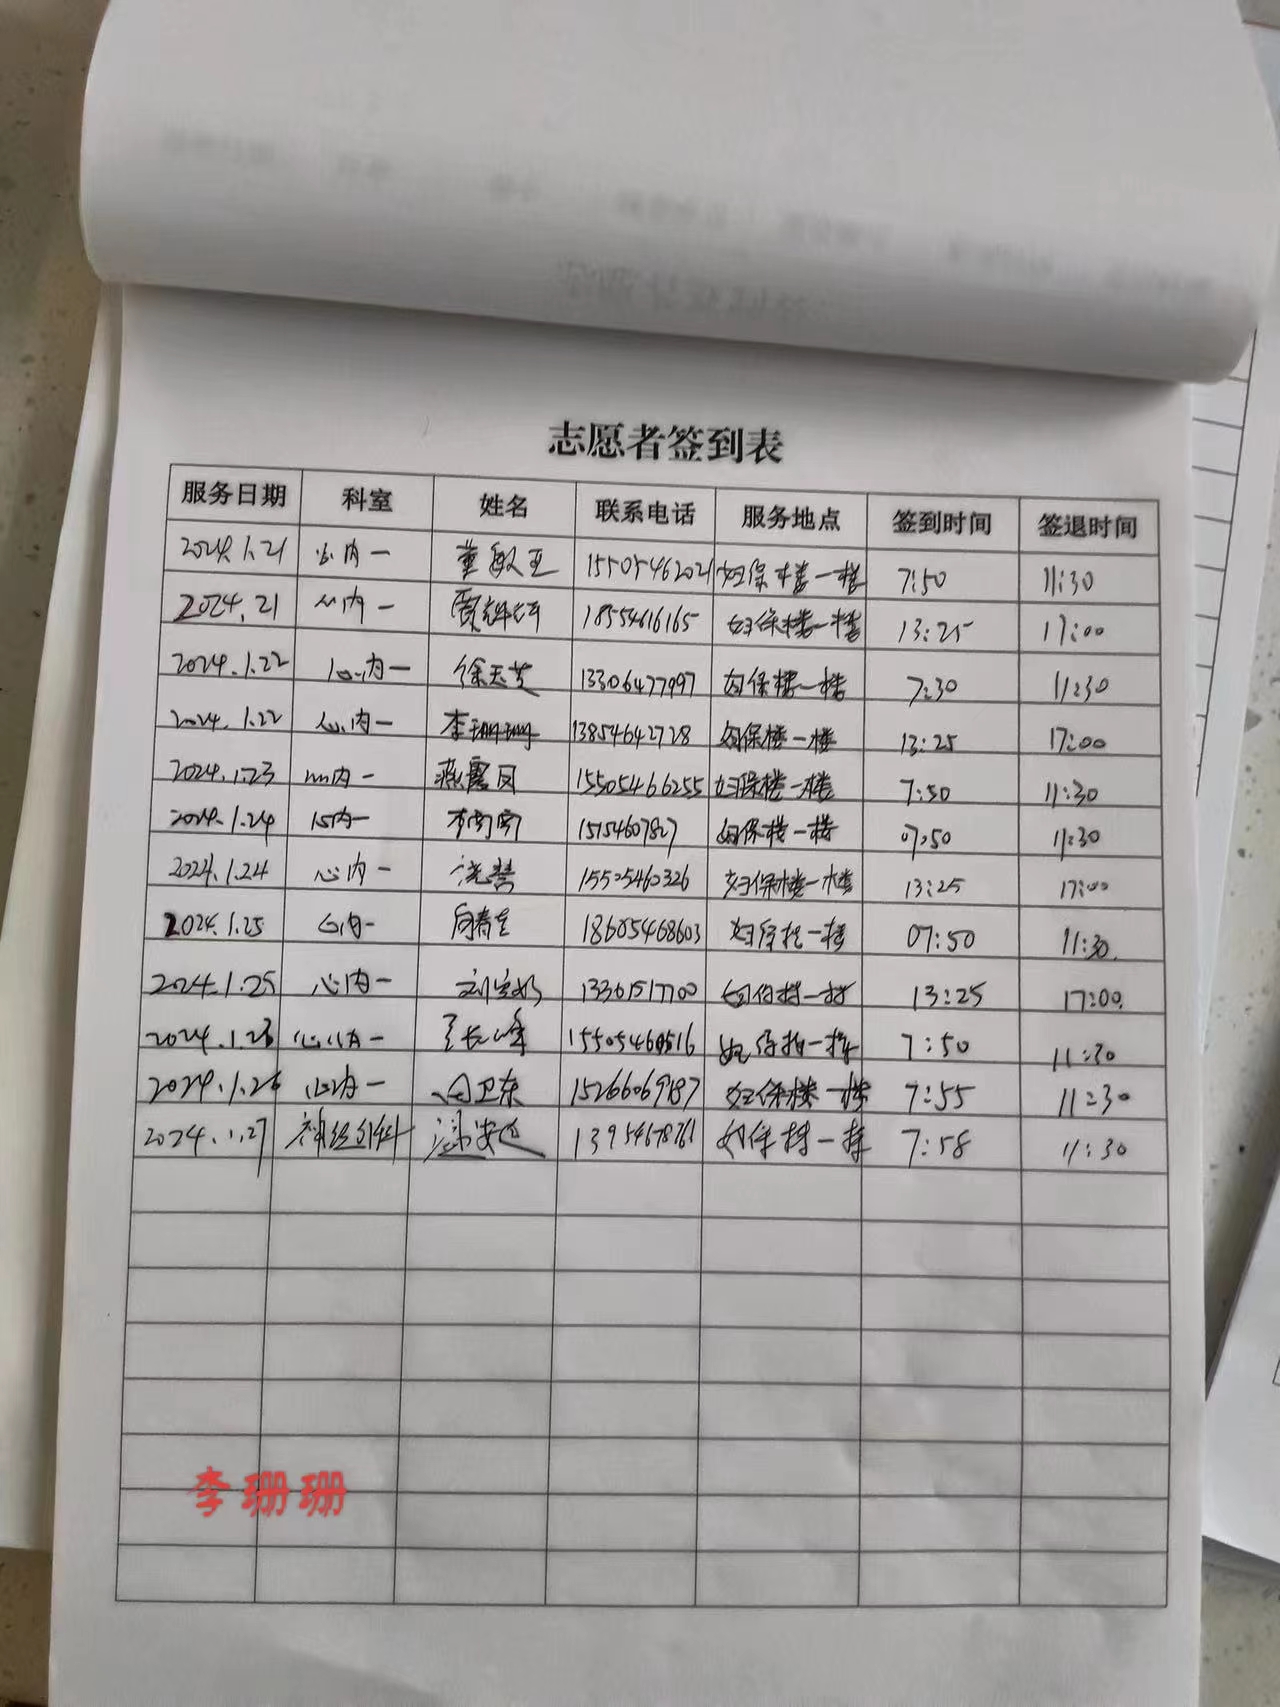 志愿者签到表
服务日期 科室 姓名 联系电话 服务地点 签到时间 签退时间
2024.1.21 心内一 董敏 15505462021 妇保楼一楼 7:50 11:30
2024.21 心内一 贾 18554616165 妇保楼一楼 13:25 17:00
2024.1.22 心内一 徐玉芝 13306477997 妇保楼一楼 7:30 11:30
2024.1.22 心内一 李珊珊 13854642728 妇保楼一楼 13:25 17:00
2024.1.23 心内一 燕霞 15505466255 妇保楼一楼 7:50 11:30
2024.1.24 心内一 李 15154607827 妇保楼一楼 07:50 11:30
2024.1.24 心内一 15505460326 妇保楼一楼 13:25 17:00
2024.1.25 心内一 18605468603 妇保楼一楼 07:50 11:30
2024.1.25 心内一 刘 13361517700 妇保楼一楼 13:25 17:00
心内一 妇保楼一楼 7:50 11:30
2024.1.26 心内一 卫东 妇保楼一楼 7:55 11:30
2024.1.27 神经外科 13954678761 妇保楼一楼 7:58 11:30
李珊珊